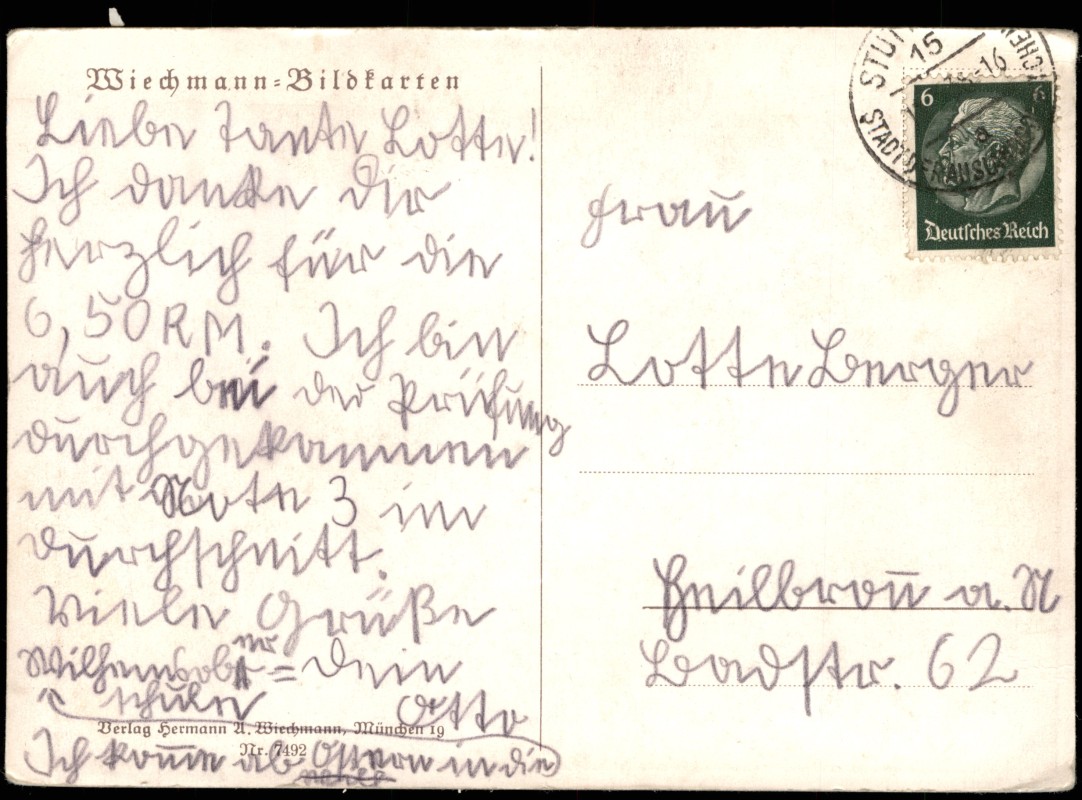 Wiechmann-Bildkarten
Liebe Tante Lotte!
Ich danke Dir
herzlich für die
6,50 RM. Ich bin
auch bei der Prüfung
durchgekommen
mit Note 3 im
Durchschnitt.
Viele Grüße
Dein
Otto
Ich komme ab Ostern in die
Wilhelmsober=
schule
Verlag Hermann A. Wiechmann, München 19
Nr. 7492
STADT DER AUSLANDS
15
6
6
Deutsches Reich
Frau
Lotte Berger
Heilbronn a. N
Badstr. 62